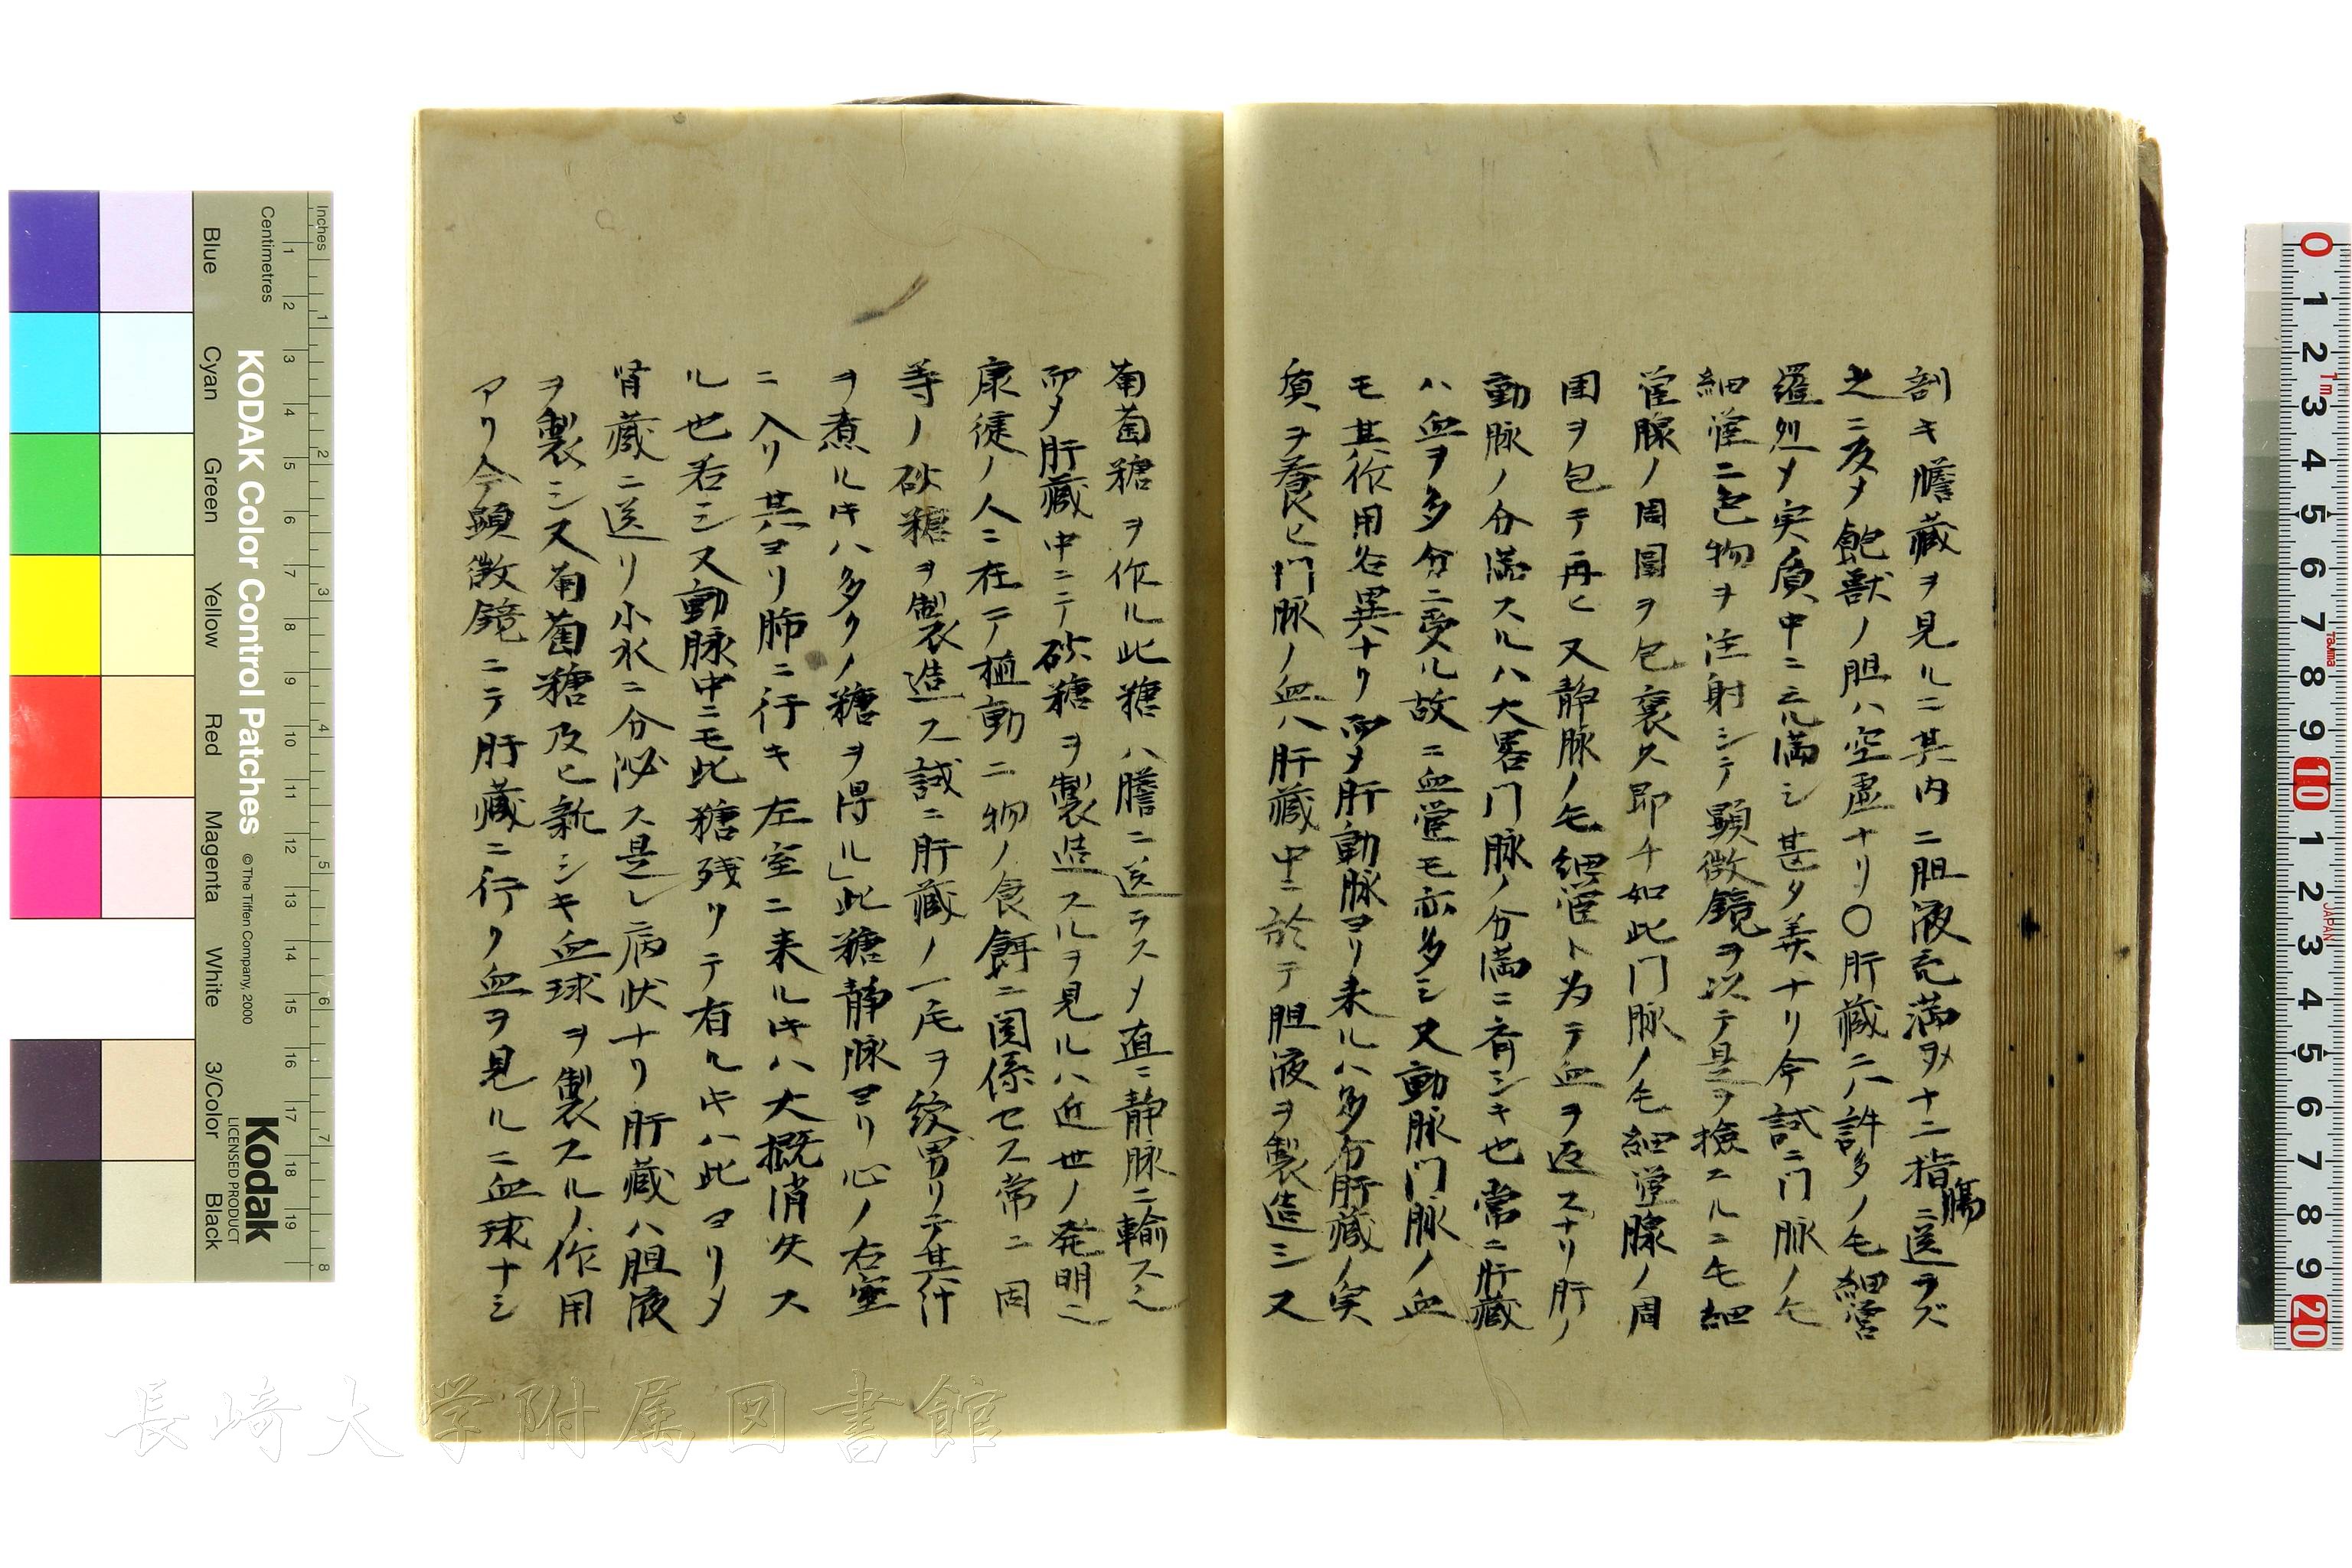 剖キ膽藏ヲ見ルニ其内ニ胆液充満タメ十二指腸ニ送ラズ
之ニ反メ飽獣ノ胆ハ空虚ナリ〇肝藏ニハ許多ノ毛細管
羅列メ実質中ニ充満シ甚タ美ナリ今試ニ門脉ノ毛
細管ニ色物ヲ注射シテ顕微鏡ヲ以テ是ヲ撿スルニ毛細
管腺ノ周圍ヲ包裹ス即チ如此門脉ノ毛細管腺ノ周
囲ヲ包テ再ヒ又静脉ノ毛細管ト為テ血ヲ返スナリ肝ノ
動脉ノ分満スルハ大畧門脉ノ分満ニ斉シキ也常ニ肝藏
ハ血ヲ多分ニ受ル故ニ血管モ亦多シ又動脉門脉ノ血
モ其作用各異ナリ而メ肝動脉ヨリ来ルハ多分肝藏ノ実
質ヲ養ヒ門脉ノ血ハ肝藏中ニ於テ胆液ヲ製造シ又
葡萄糖ヲ作ル此糖ハ膽ニ送ラスメ直ニ静脉ニ輸ス也
而メ肝藏中ニテ砂糖ヲ製造スルヲ見ルハ近世ノ発明也
康健ノ人ニ在テ植動二物ノ食餌ニ関係セス常ニ因
等ノ砂糖ヲ製造ス試ニ肝藏ノ一片ヲ細割リテ其汁
ヲ煮ル時ハ多クノ糖ヲ得ル」此糖静脉ヨリ心ノ右室
ニ入リ其ヨリ肺ニ行キ左室ニ来ル時ハ大概消失ス
ル也若シ又動脉中ニモ此糖残リテ有ル時ハ此ヨリメ
腎藏ニ送リ小水ニ分泌ス是レ病状ナリ肝藏ハ胆液
ヲ製シ又葡萄糖及ヒ新シキ血球ヲ製スルノ作用
アリ今顕微鏡ニテ肝藏ニ行ク血ヲ見ルニ血球ナシ
Inches
Centimetres
KODAK Color Control Patches
© The Tiffen Company, 2000
Kodak
LICENSED PRODUCT
Blue
Cyan
Green
Yellow
Red
Magenta
White
3/Color
Black
長崎大学附属図書館